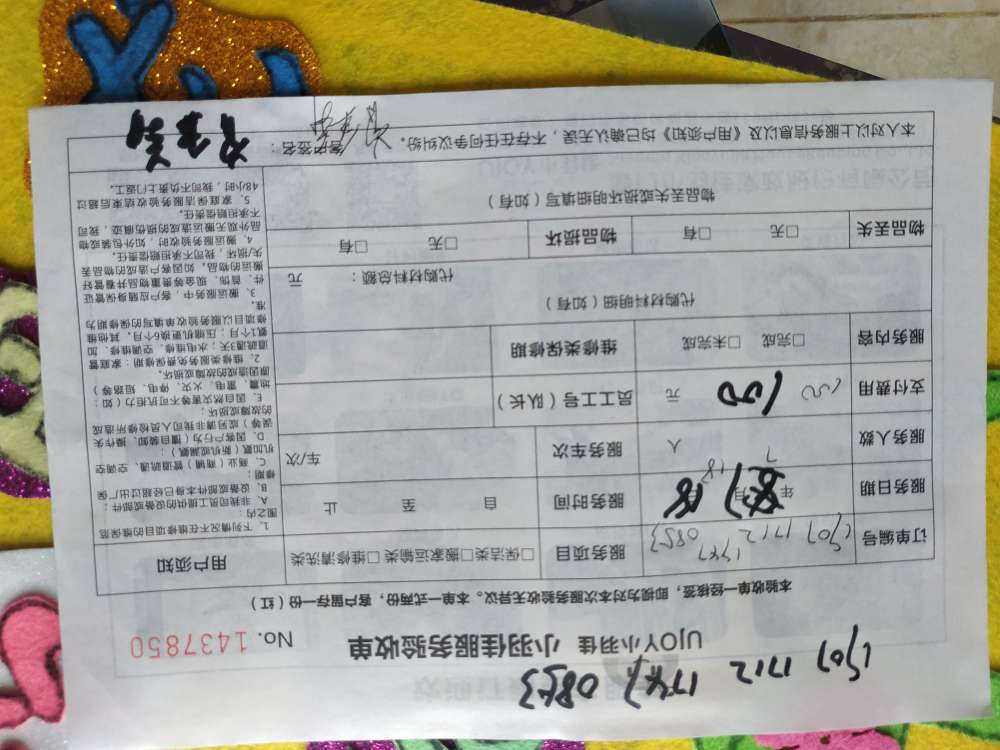 1507 1712 1747 0853
UJOY小羽佳 小羽佳服务验收单 No. 1437850
本验收单一经核签，即视为对本次服务验收无异议。本单一式两份，客户留存一份（红）
订单编号 1507 1712 1747 0853 服务项目 □保洁类□搬家运输类□维修清洗类
服务日期 年 月 服务时间 自 至 止
服务人数 人 服务车次 车/次
支付费用 100 100 元 员工工号（队长）
服务内容 □完成 □未完成 维修类保修期
代购材料明细（如有）
代购材料总额： 元
物品丢失 □无 □有 物品损坏 □无 □有
物品丢失或损坏明细填写（如有）
用户须知
1. 下列情况不在维修项目的维保范
围之内：
A、非我司员工提供的设备或部件；
B、设备或部件本身已经超过出厂保
修期；
C、商业（商铺）管道疏通、空调空
机加氟（新机或漏氟）；
D、因客户行为（擅自装卸、操作失
误等）或另请非我司人员检修所造成
的故障或损坏；
E、因自然灾害等不可抗力（如：
地震、雷电、火灾、停电、短路等）
原因造成的故障或损坏。
2、维修类服务免费保修期：家庭管
道疏通3天；水电维修、空调维修、加
氟1个月；压缩机更换6个月，其他维
修项目以服务验收单填写的保修期为
准。
3、搬运服务中，客户应随身保管证
件、首饰、现金等贵重物品并看管好
搬运的物品，如因客户造成的物品丢
失/损坏，我司不承担赔偿责任。
4、搬运服务验收时，如外包装或物
品外观无搬运造成的损伤痕迹，我司
不承担赔偿责任。
5、家庭保洁服务验收结束后超过
48小时，我司不负责上门返工。
本人对以上服务信息以及《用户须知》均已确认无误，不存在任何争议纠纷。 客户签名：